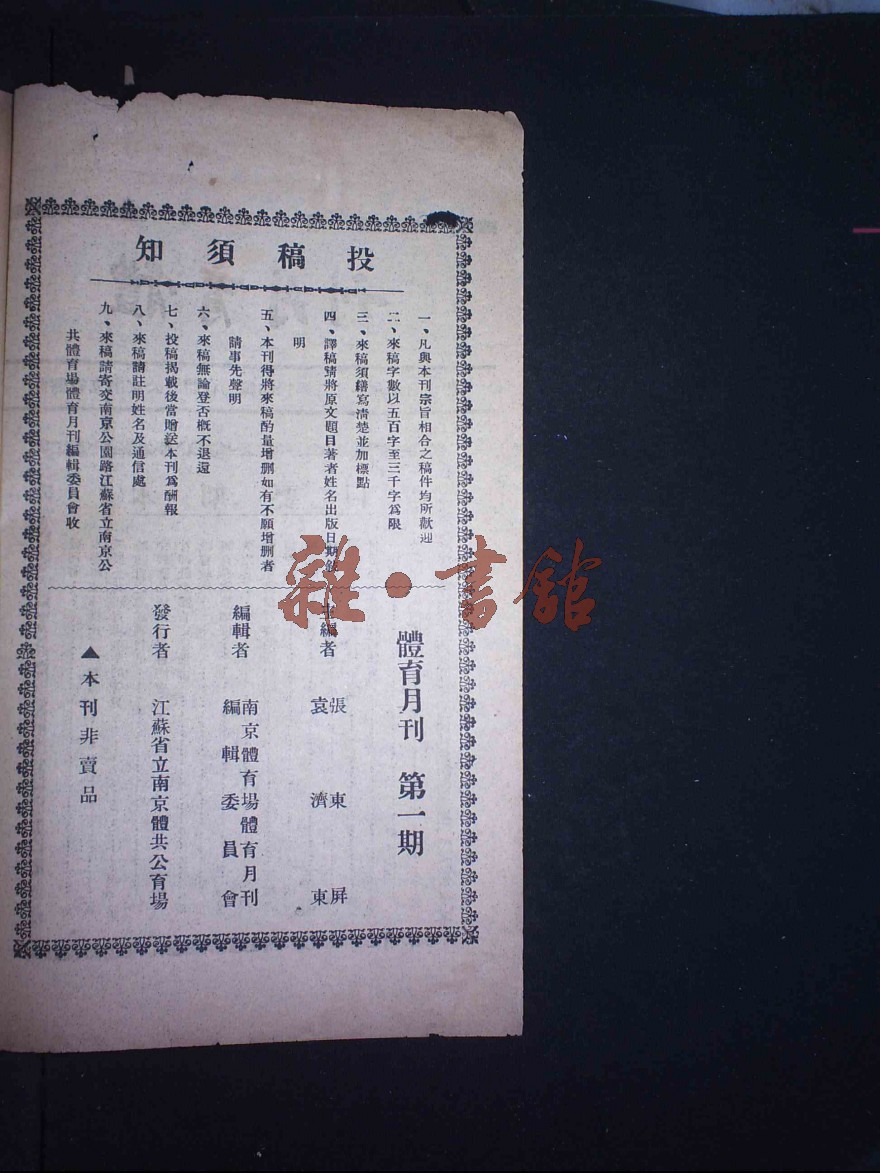 投稿須知
一、凡與本刊宗旨相合之稿件均所歡迎
二、來稿字數以五百字至三千字為限
三、來稿須繕寫清楚並加標點
四、譯稿請將原文題目著者姓名出版日期
明
五、本刊得將來稿酌量增删如有不願增删者
請事先聲明
六、來稿無論登否概不退還
七、投稿揭載後當贈送本刊爲酬報
八、來稿請註明姓名及通信處
九、來稿請寄交南京公園路江蘇省立南京公
共體育場體育月刊編輯委員會收
體育月刊 第一期
主編者 張東屏
袁濟東
編輯者 南京體育場體育月刊
編輯委員會
發行者 江蘇省立南京體共公育場
▲本刊非賣品
雜·書館